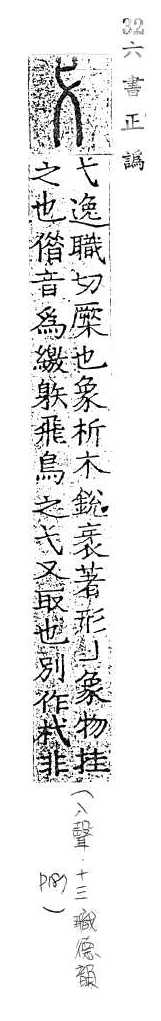 32 六書正譌
弋逸職切橜也象析木銳衺著形丿象物挂
之也僭音爲繳䠶飛鳥之弋又取也別作杙非
(入聲.十三職德韻
P187)